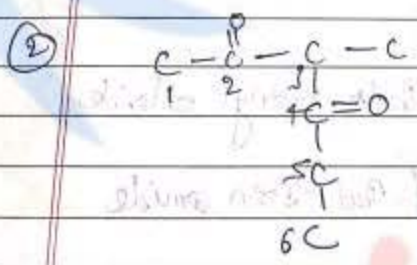 ②
O
C - C - C - C
1 2 3
4C=O
5C
6C